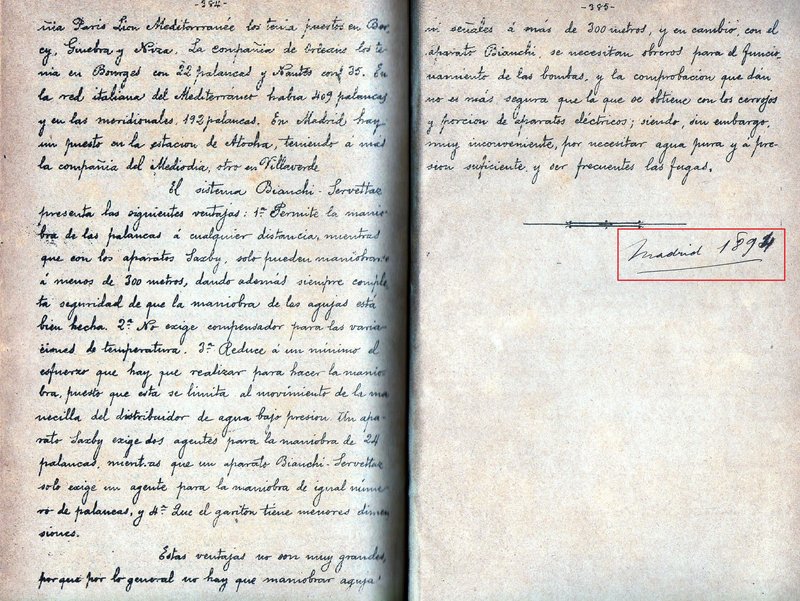 -384-
ñia Paris Lion Mediterrraneé los tenia puertos en Bor
cy, Ginebra y Niza. La compañia de Orleans los te
nia en Bourges con 22 palancas y Nantes con 35. En
la red italiana del Mediterráneo habia 409 palancas
y en las meridionales, 192 palancas. En Madrid hay
un puesto en la estacion de Atocha, teniendo á más
la compañia del Mediodia, otro en Villaverde
El sistema Bianchi-Servettaz
presenta las siguientes ventajas: 1ª Permite la manio
bra de las palancas á cualquier distancia, mientras
que con los aparatos Saxby, solo pueden maniobrarse
á menos de 300 metros, dando además siempre comple
ta seguridad de que la maniobra de las agujas esta
bien hecha. 2ª No exige compensador para las varia
ciones de temperatura. 3ª Reduce á un minimo el
esfuerzo que hay que realizar para hacer la manio
bra, puesto que esta se limita al movimiento de la ma
necilla del distribuidor de agua bajo presion. Un apa-
rato Saxby exige dos agentes para la maniobra de 24
palancas, mientras que un aparato Bianchi-Servettaz
solo exige un agente para la maniobra de igual núme
ro de palancas, y 4ª Que el gariton tiene menores dimen
siones.
Estas ventajas no son muy grandes,
porque por lo general no hay que maniobrar agujas
-385-
ni señales á más de 300 metros, y en cambio, con el
aparato Bianchi, se necesitan obreros para el funcio-
namiento de las bombas, y la comprobacion que dán
no es más segura que la que se obtiene con los cerrojos
y porcion de aparatos eléctricos; siendo, sin embargo,
muy inconveniente, por necesitar agua pura y á pre-
sion suficiente, y ser frecuentes las fugas.
Madrid 1894